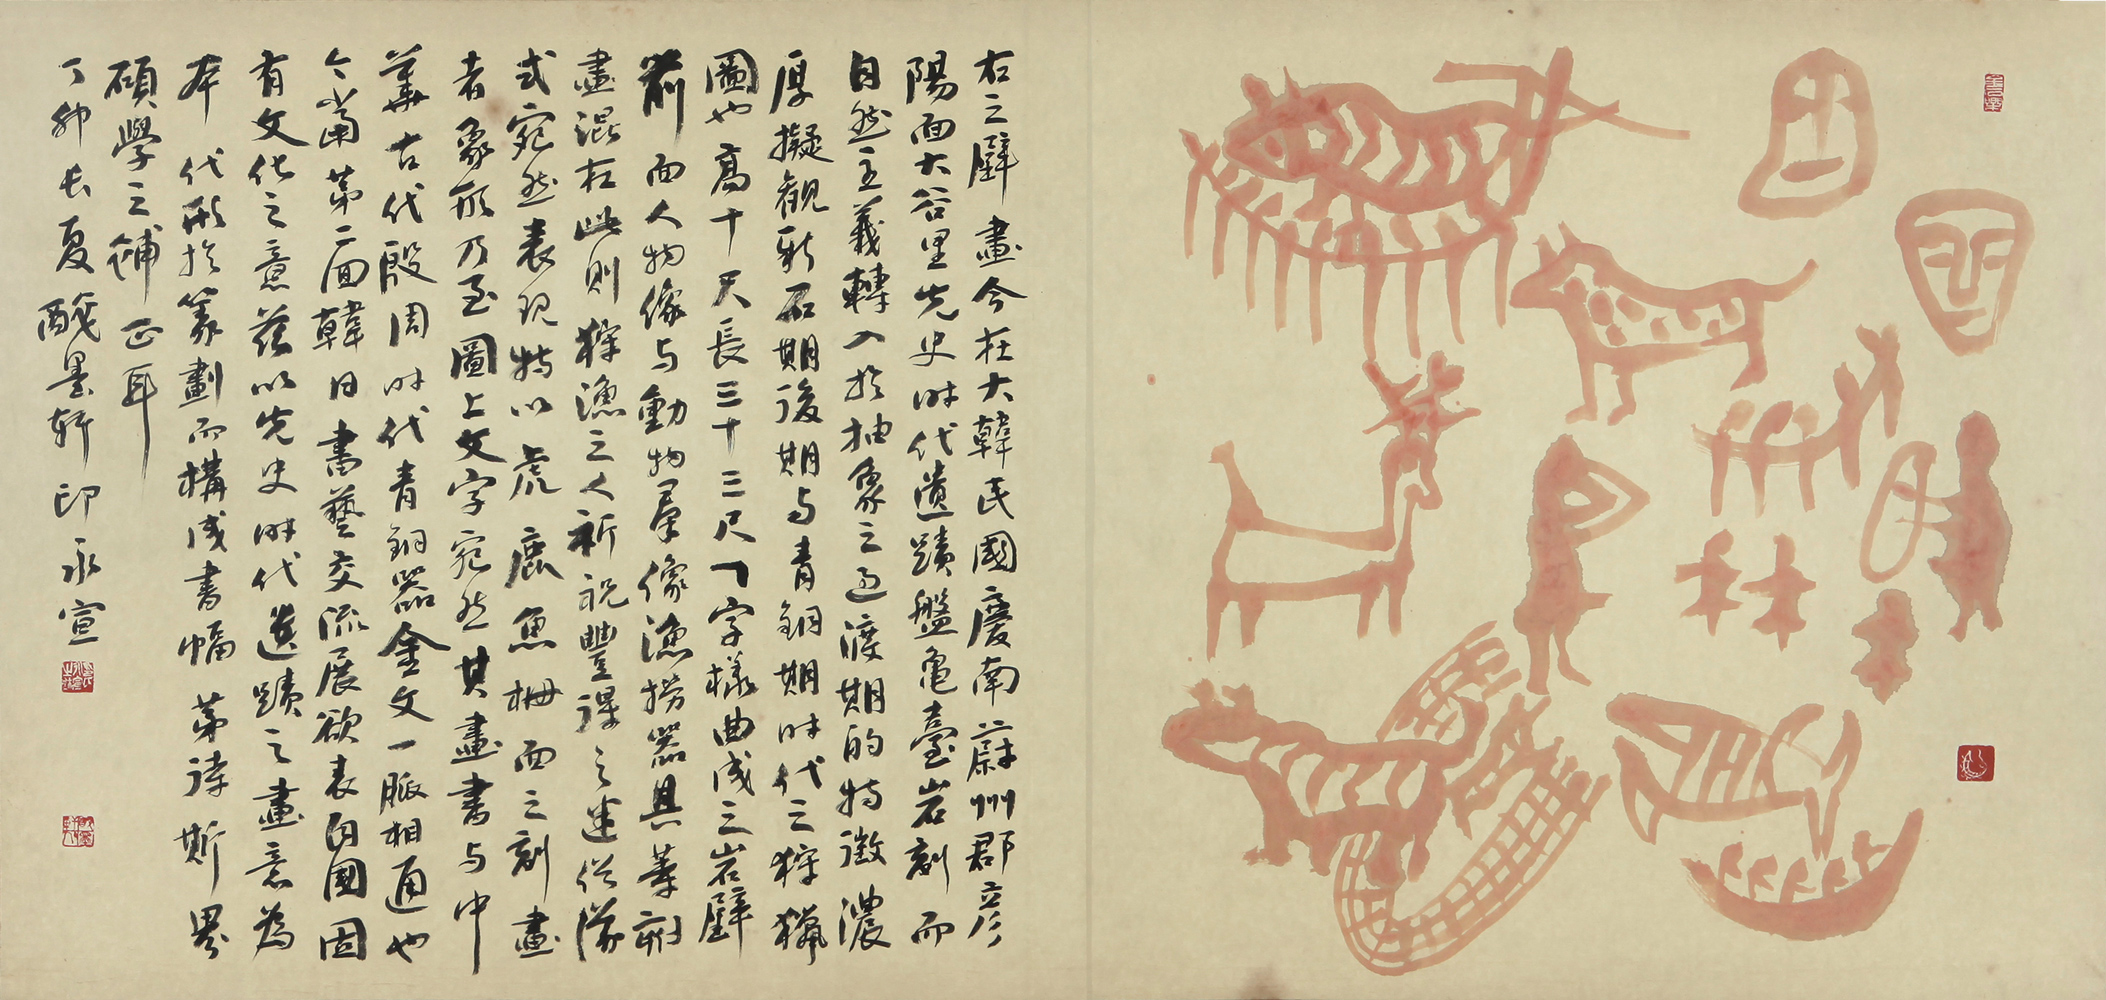 右之壁畫今在大韓民國慶南蔚州郡彦
陽面大谷里先史時代遺蹟盤龜臺岩刻而
自然主義轉入於抽象之過渡期的特徵濃
厚擬觀新石期後期与青銅期期時代之狩獵
圖也高十尺長三十三尺ㄱ字樣曲成之岩壁
前面人物像与動物羣像漁撈器具等刻
畫混在此則狩漁之人祈祝豐漁之迷俗隊
式宛然表現特以虎鹿魚柵面之刻畫
者象形乃至圖上文字宛然其畫書与中
華古代殷周时代青銅器金文一脈相通也
今當第二回韓日書藝交流展欲表自國固
有文化之意茲以先史時代遺蹟之畫意為
本代形於篆劃而構成書幅 第諱斯界
碩學之補正耳
丁卯长夏醆墨軒 印永宣